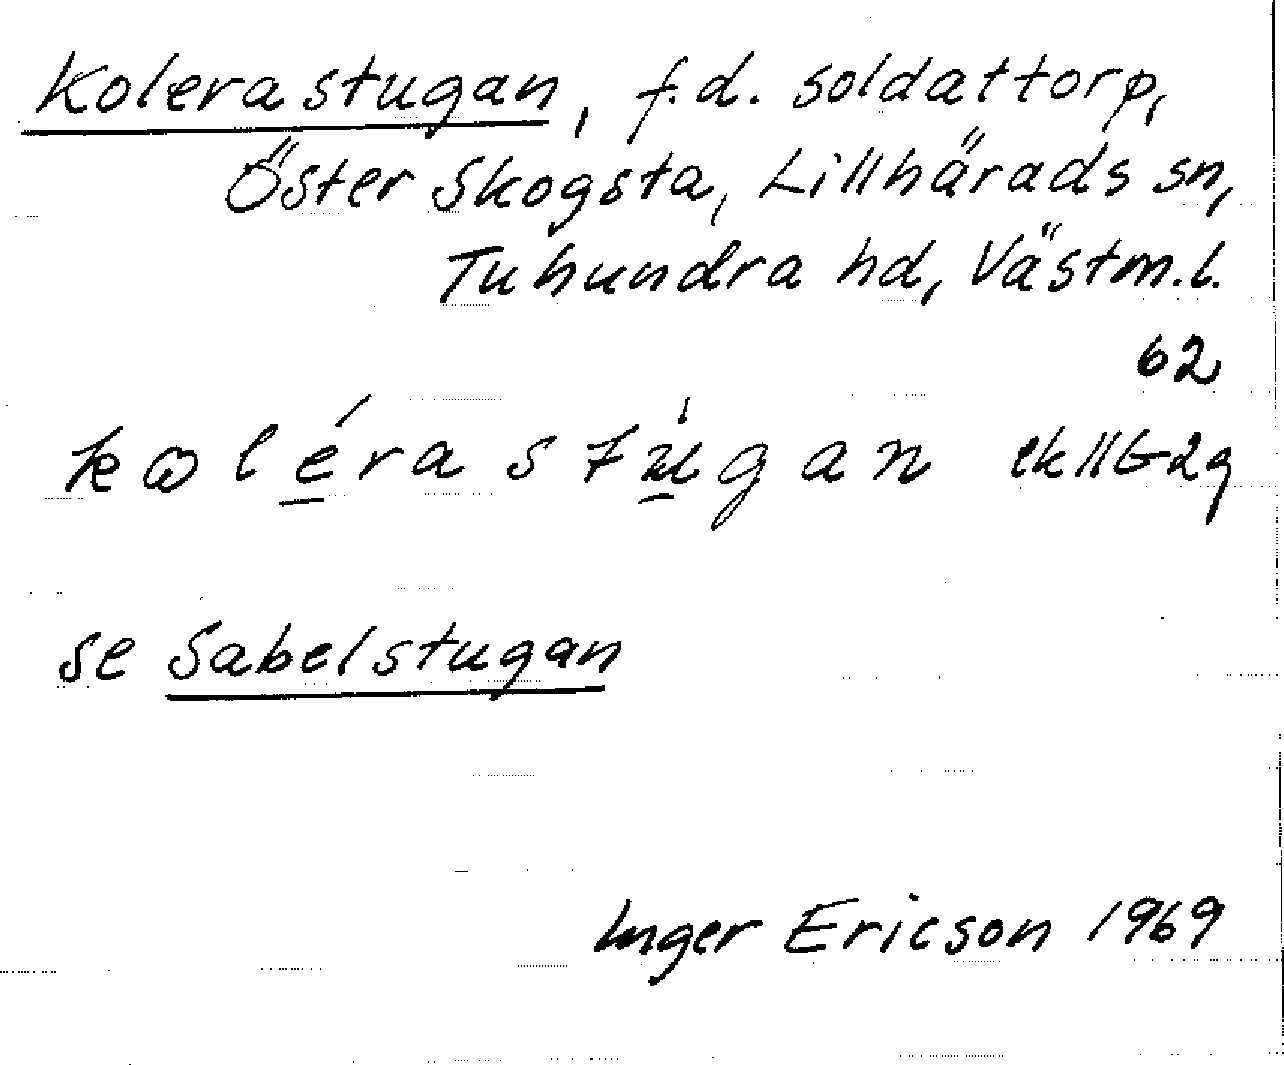 Kolerastugan, f.d. soldattorp,
Öster Skogsta, Lillhärads sn,
Tuhundra hd, Västm.l.
62
kolérastúgan ekllG2g
se Sabelstugan
Inger Ericson 1969